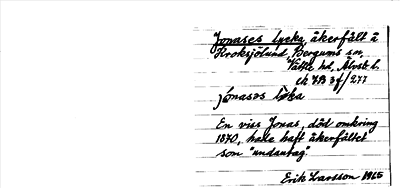 Jonases lycka, åkerfält å
Kroksjölund, Bergums sn,
Vättle hd, Älvsb. l.
ek. KB 3f/277
jónasas lỳka
En viss Jonas, död omkring
1870, hade haft åkerfältet
som "undantag".
Erik Larsson 1965